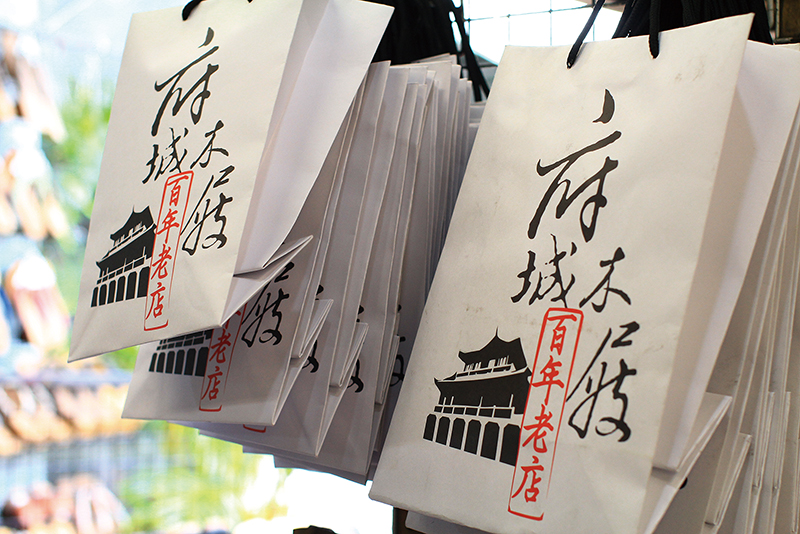 府城
木屐
百年老店
府城
木屐
百年老店